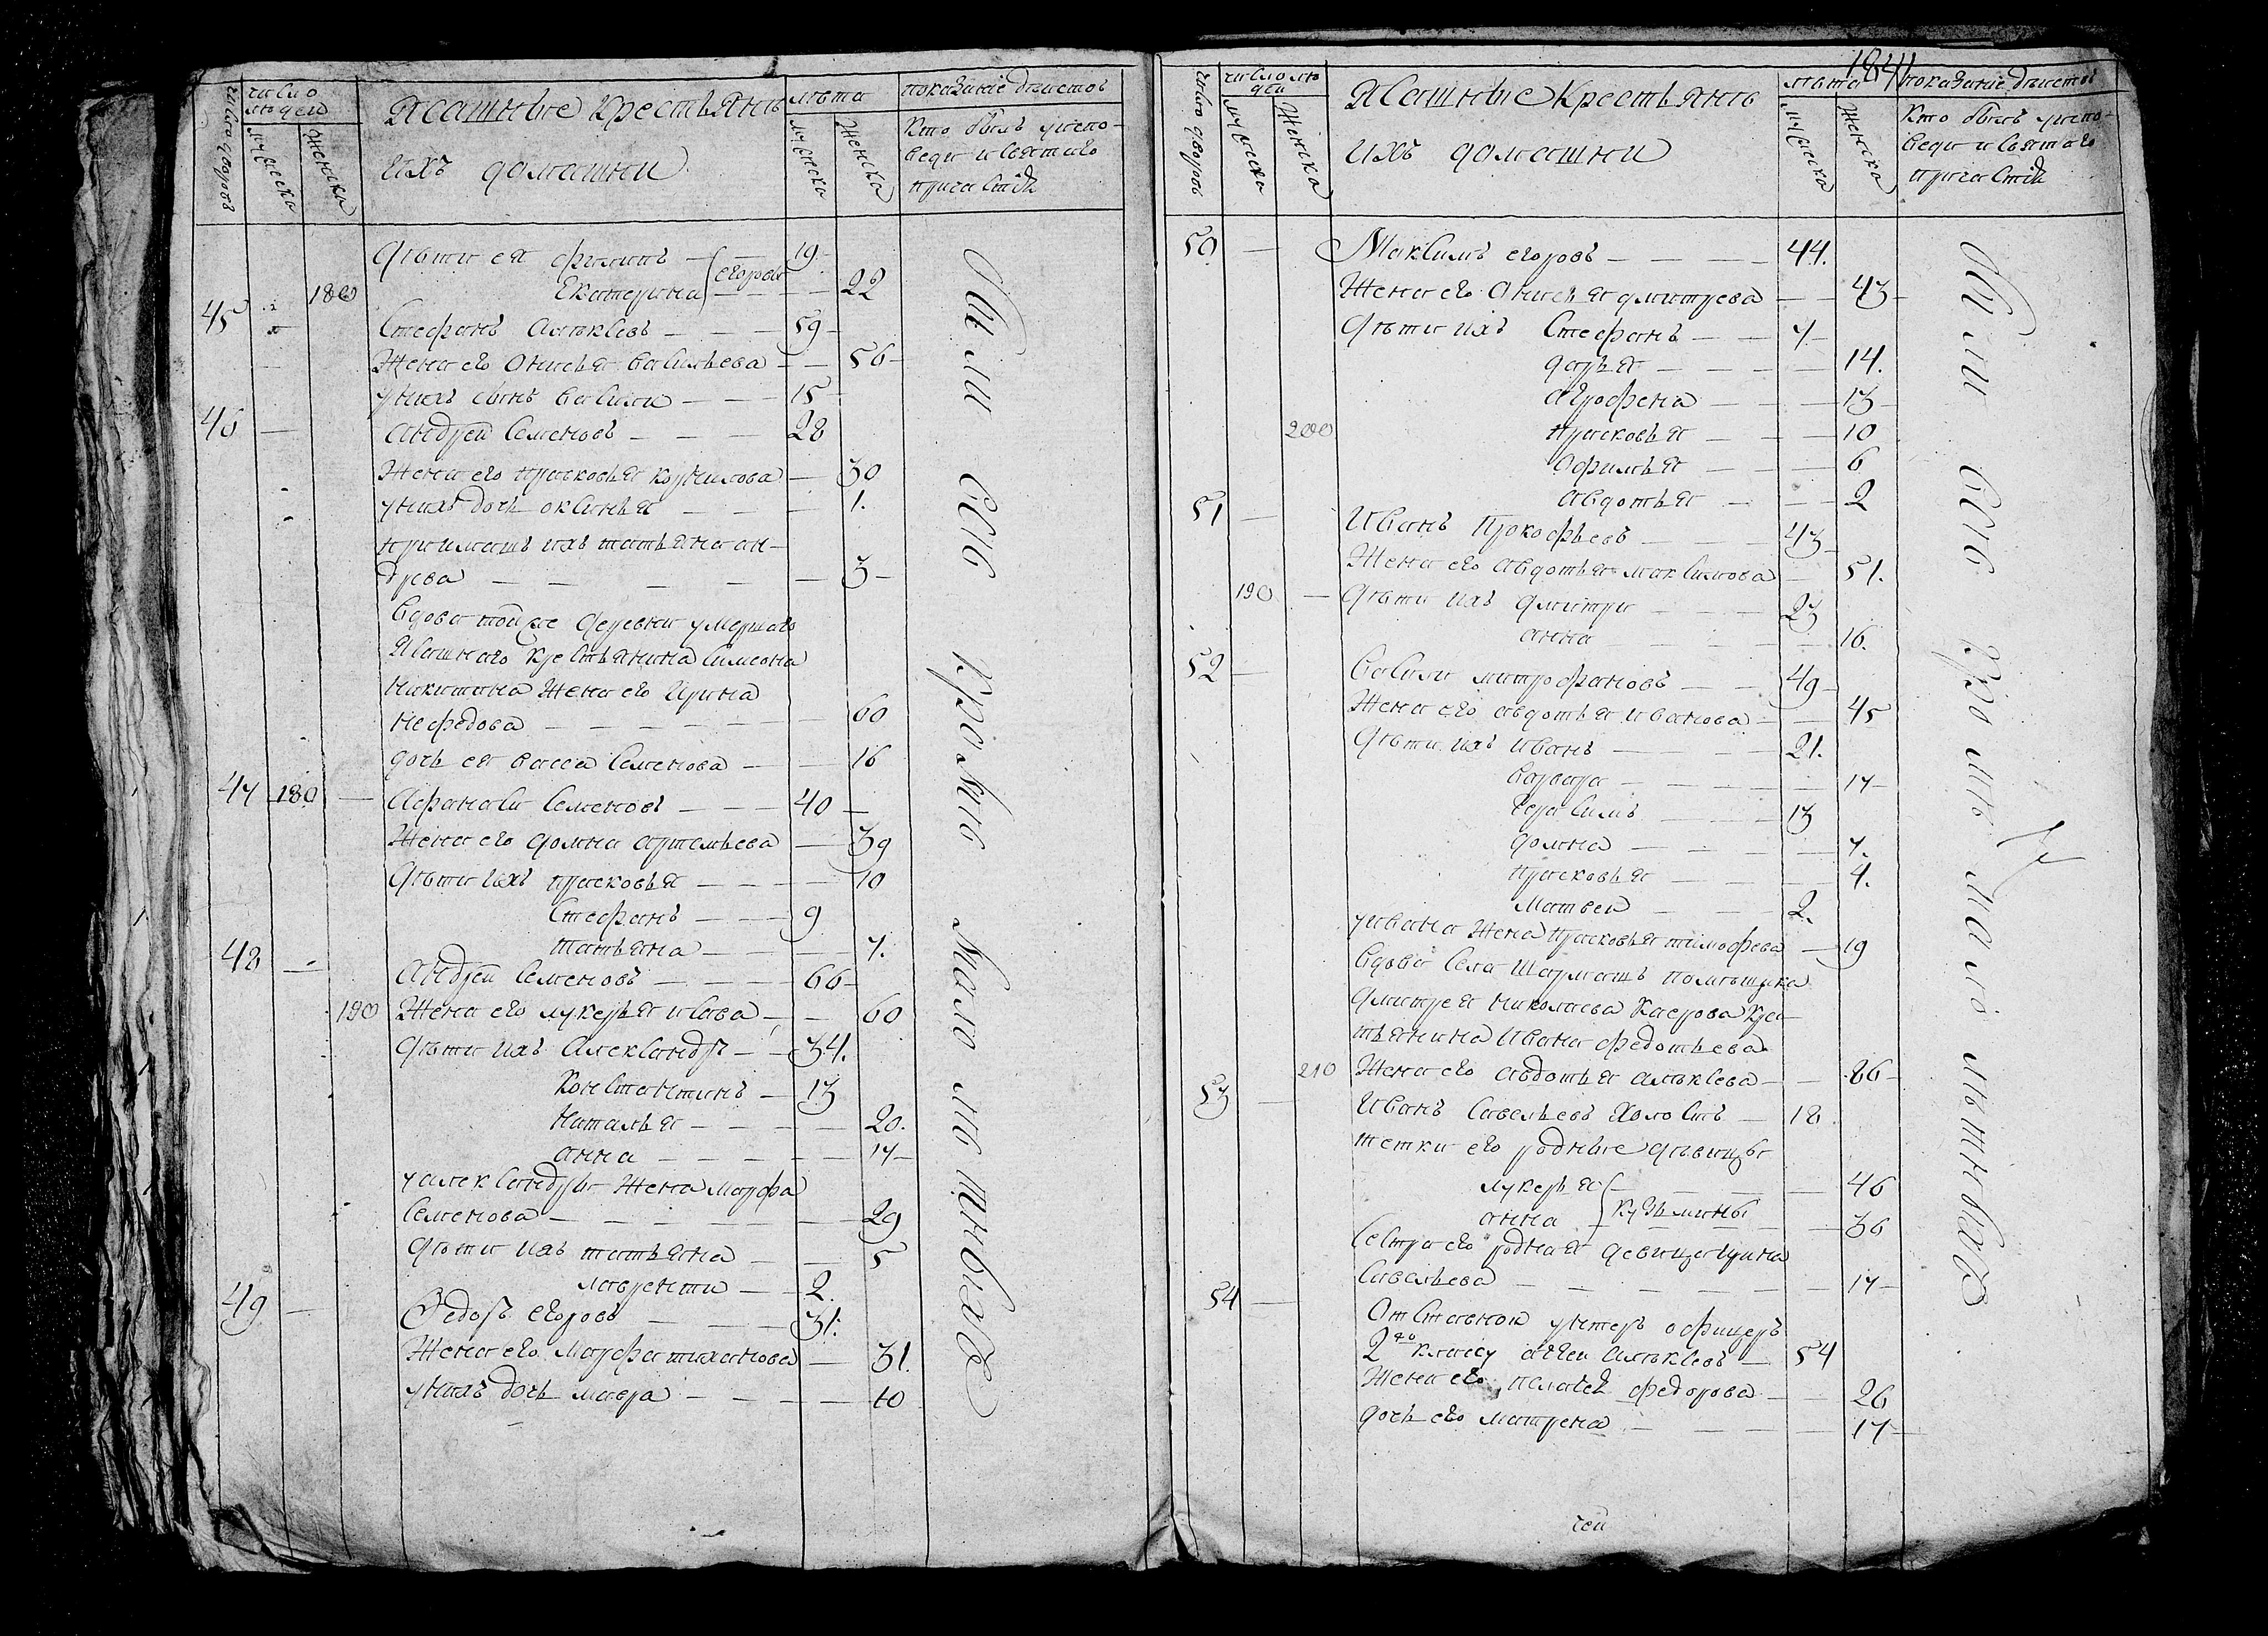 число дворовъ
число
людей
мужеска
женска
Ясашные крестьяня
ихъ домашни
лѣта
мужеска
женска
показание двистовъ
Кто былъ у испо-
веди и святаго
причастия
180
дѣти ея филипъ 19
Екатерина егоровы 22
45 Стефанъ алѣксевъ 59
Жена его анисья васильева 56
у нихъ сынъ василей 15
46 андрей семеновъ 28
Жена его прасковья корнилова 30
у нихъ дочь оксинья 1.
приимышъ ихъ татьяна ан-
древа 3
вдова тойже деревни умершаго
Ясашнаго крестьянина симеона
никитина Жена его ирина
нефедова 60
дочь ея васса семенова 16
47 180 Афанаси семеновъ 40
Жена его домна артемьева 39
дѣти ихъ прасковья 10
Стефанъ 9
татьяна 7.
48 андрей семеновъ 66
190 Жена его лукерья исаева 60
дѣти ихъ александръ 34.
Константинъ 13
наталья 20.
анна 17
у александры Жена марфа
семенова 29
дѣти ихъ татьяна 5
лаврентии 2.
49 Федоръ егоровъ 31.
Жена его марфа тиханова 31.
у нихъ дочь мавра 10
были все кромѣ малолѣтныхъ
184
число дворовъ
число лю
дей
мужеска
женска
Ясашные крестьяня
ихъ домашни
лѣта
мужеска
женска
показание двистовъ
Кто былъ у испо-
веди и святаго
причастия
50 Максимъ егоровъ 44.
Жена его анисья дмитрева 43
дѣти ихъ Стефанъ 7
дарья 14.
агрофена 13
200 прасковья 10
афимья 6
авдотья 2
51 Иванъ Прокофьевъ 43
Жена его авдотья максимова 51.
190 дѣти ихъ дмитри 23
анна 16.
52 василий митрофановъ 49
Жена его авдотья иванова 45
дѣти ихъ иванъ 21.
варвара 17
герасимъ 13
домна 7.
прасковья 4.
матвей 2.
у ивана Жена прасковья тимофева 19
вдова села помѣщика
дмитрея николаева крес-
тьянина ивана федотьева
210 Жена его авдотья алѣксева 86
53 Иванъ савельевъ холостъ 18
тетки его родные дѣвицы
лукерья 46
анна кузьмины 36
сестра его родная девица ирина
савельева 17
54 Отставной унтеръ офицеръ
2го класу алѣксевъ 54
Жена его пелагея федорова 26
дочь его матрена 17
были все кромѣ малолѣтныхъ
чей